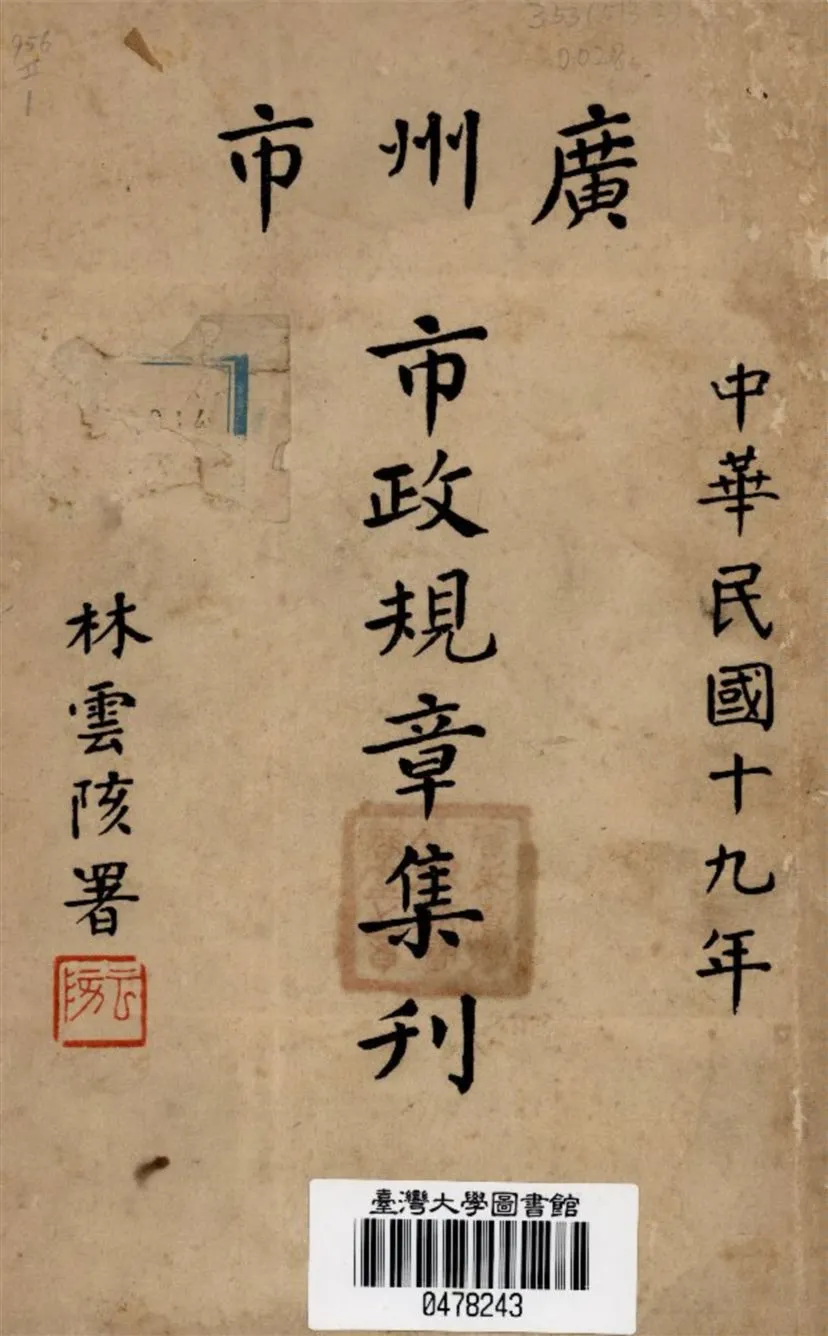 廣州市
中華民國十九年
市政規章集刊
林雲陔署
云陔
臺灣大學圖書館
0478243